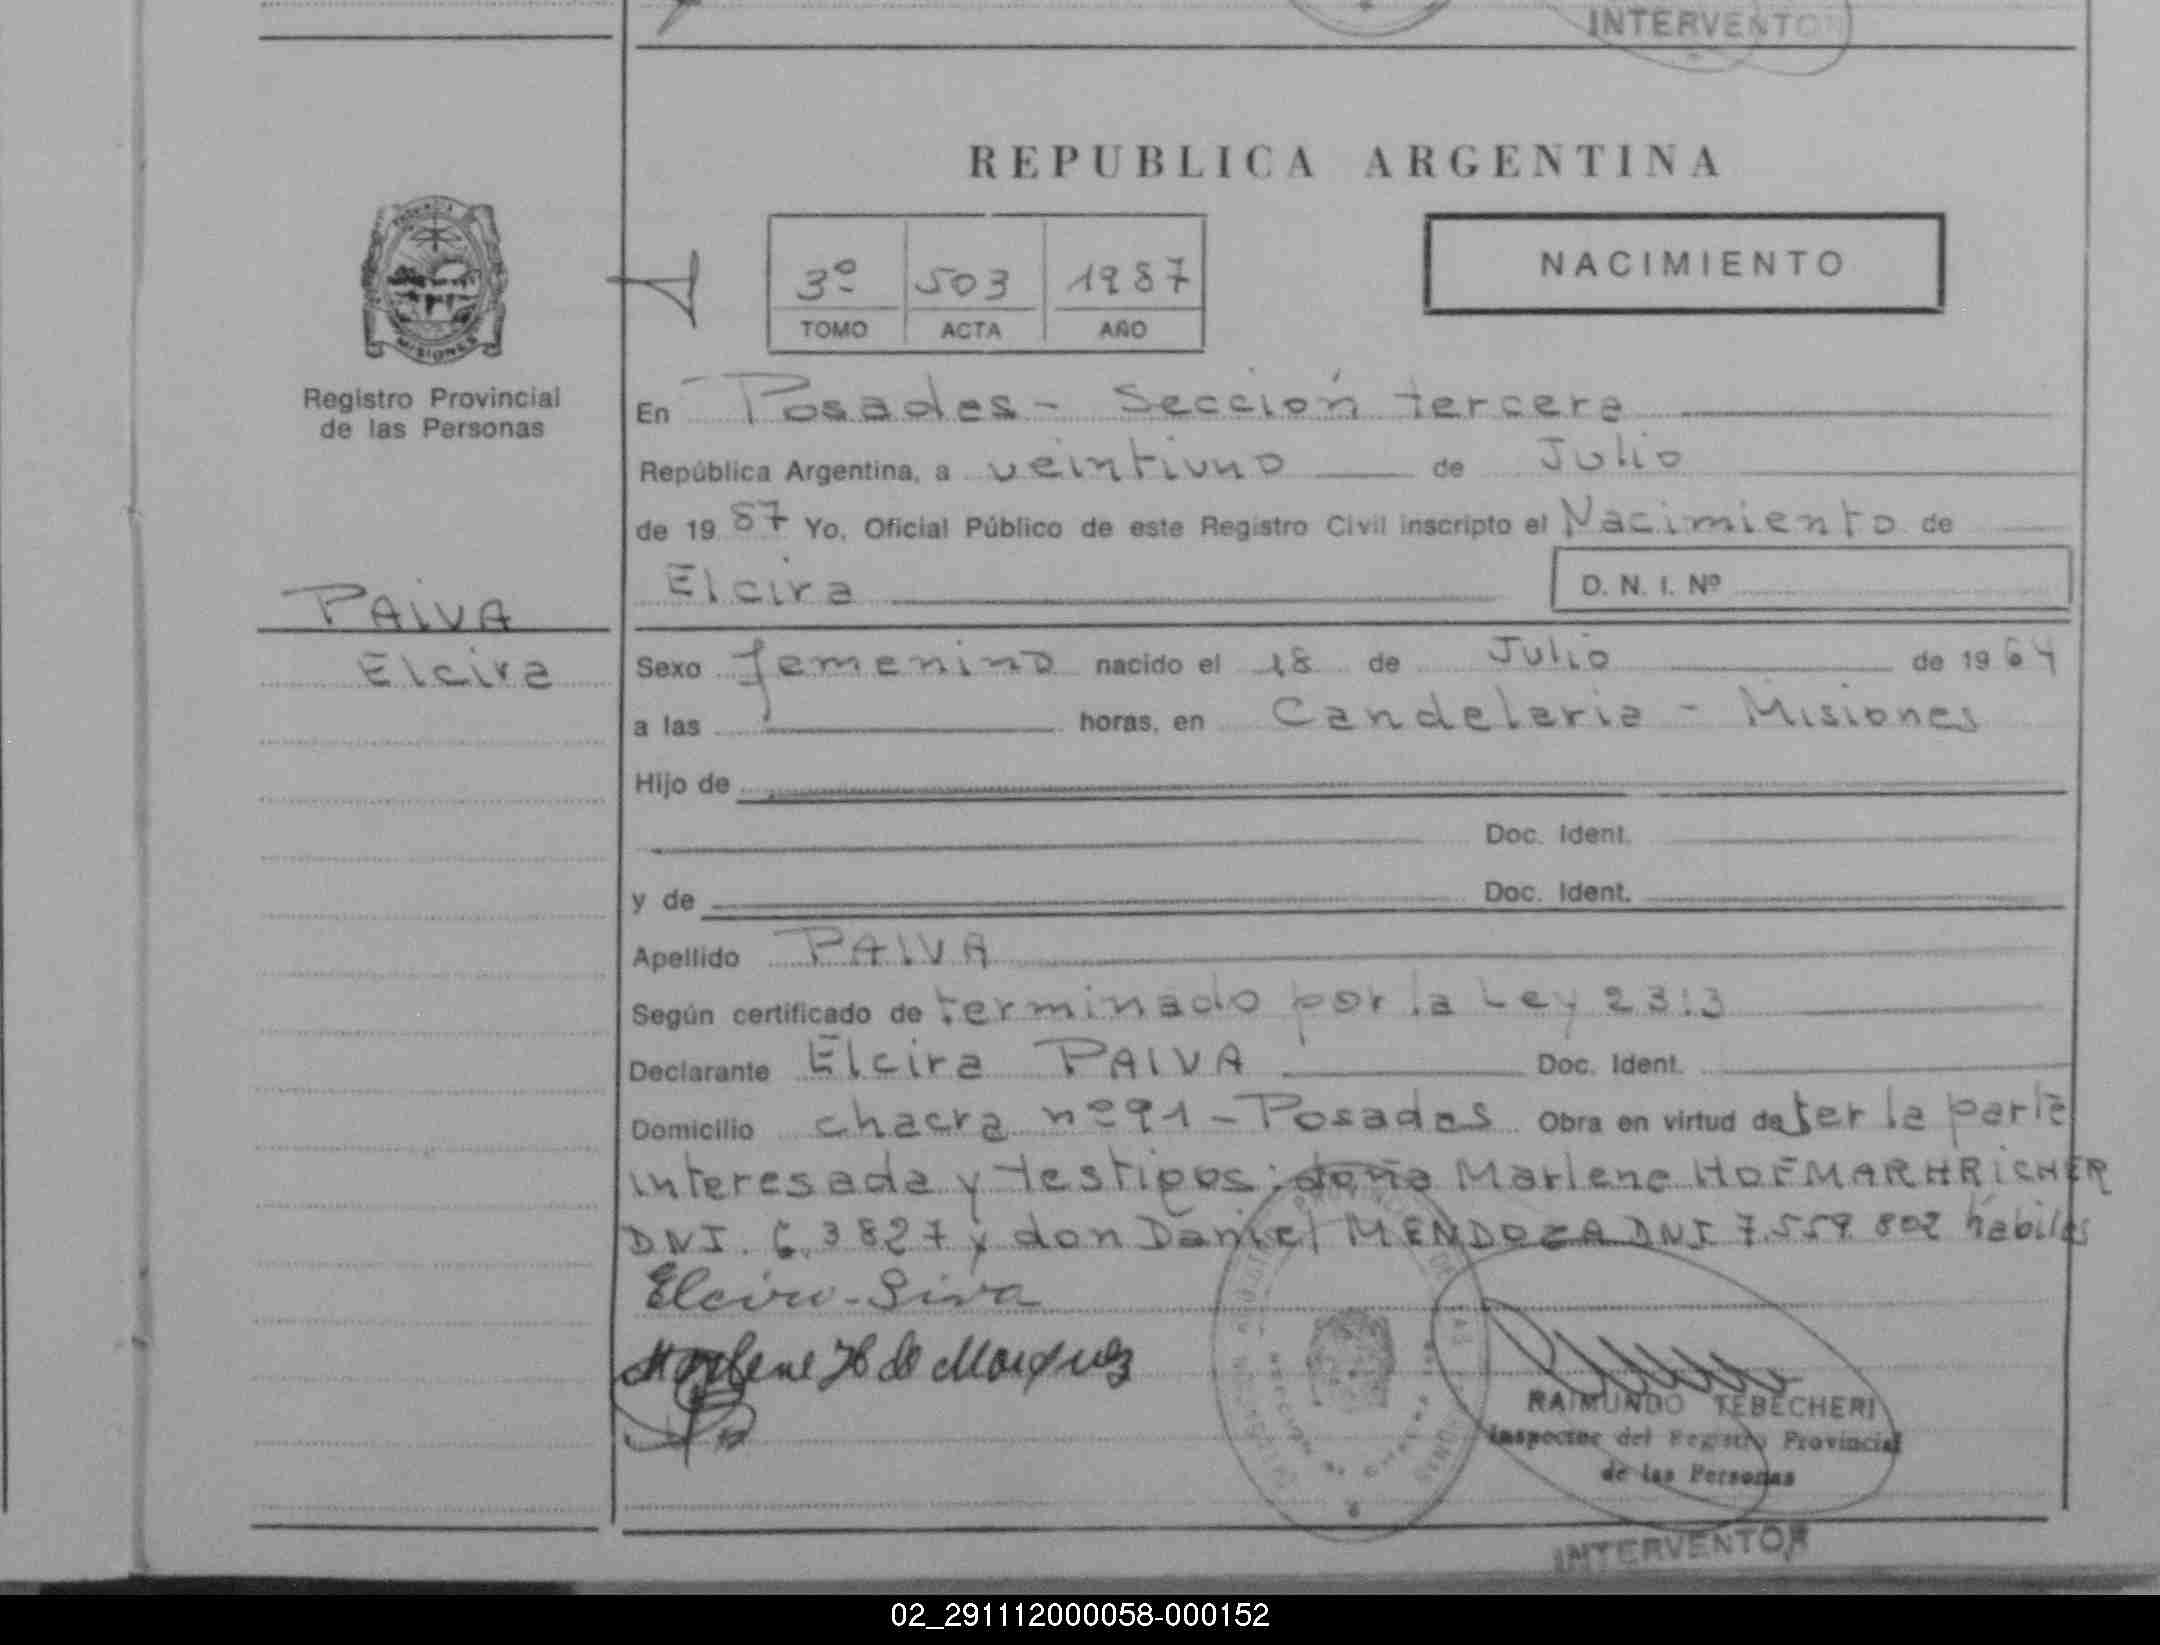 INTERVENTOR
REPUBLICA ARGENTINA
NACIMIENTO
3º 503 1987
TOMO ACTA AÑO
PROVINCIA
MISIONES
Registro Provincial
de las Personas
PAIVA
Elcira
En Posadas - Sección tercera
República Argentina, a veintiuno de Julio
de 19 87 Yo, Oficial Público de este Registro Civil inscripto el Nacimiento de
Elcira D. N. I. Nº
Sexo femenino nacido el 18 de Julio de 19 64
a las horas, en Candelaria - Misiones
Hijo de
Doc. Ident.
y de Doc. Ident.
Apellido PAIVA
Según certificado de terminado por la Ley 2313
Declarante Elcira PAIVA Doc. Ident.
Domicilio chacra nº 91 - Posadas Obra en virtud de ser la parte
interesada y testigos: doña Marlene HOFMARHRICHER
DNI. 6.3827 y don Daniel MENDOZA DNI 7.559.802 habiles
Marlene H de Marquez
RAIMUNDO TEBECHERI
Inspector del Registro Provincial
de las Personas
INTERVENTOR
02_291112000058-000152